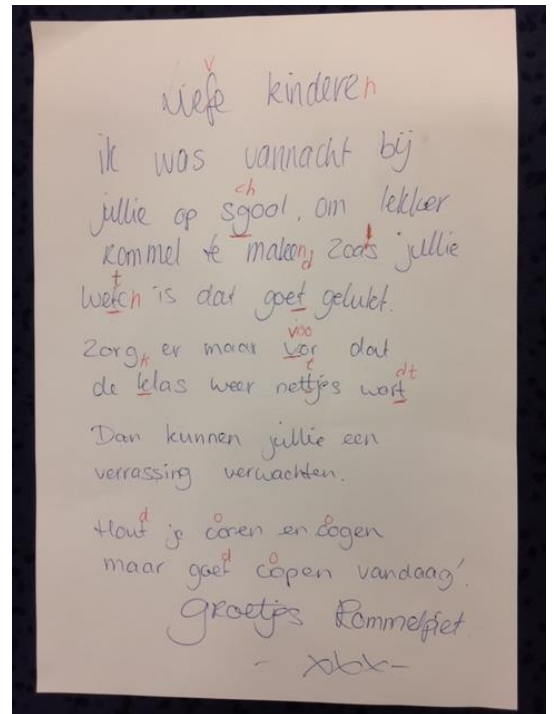 v
Liefe kinderen
ik was vannacht bij
ch
jullie op sgool. om lekker
rommel te maken, zoals jullie
t d
weten is dat goet gelukt.
voo
Zorg er maar vor dat
k t dt
de klas weer nettjes wort
Dan kunnen jullie een
verrassing verwachten.
d o o
Hout je ooren en oogen
d o
maar goet oopen vandaag!
Groetjes Rommelpiet.
- xxx -